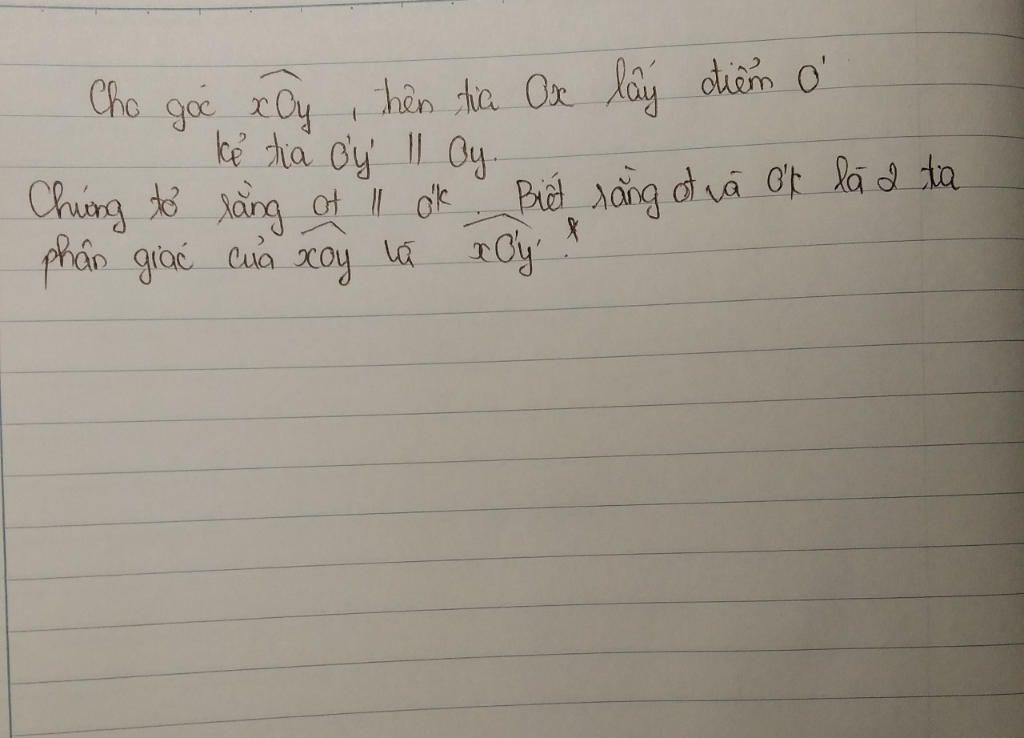 Cho góc xOy, trên tia Ox lấy điểm O'
kẻ tia O'y' // Oy.
Chứng tỏ rằng ot // o'k. Biết rằng ot và O'k là 2 tia
phân giác của xoy và xO'y'.*